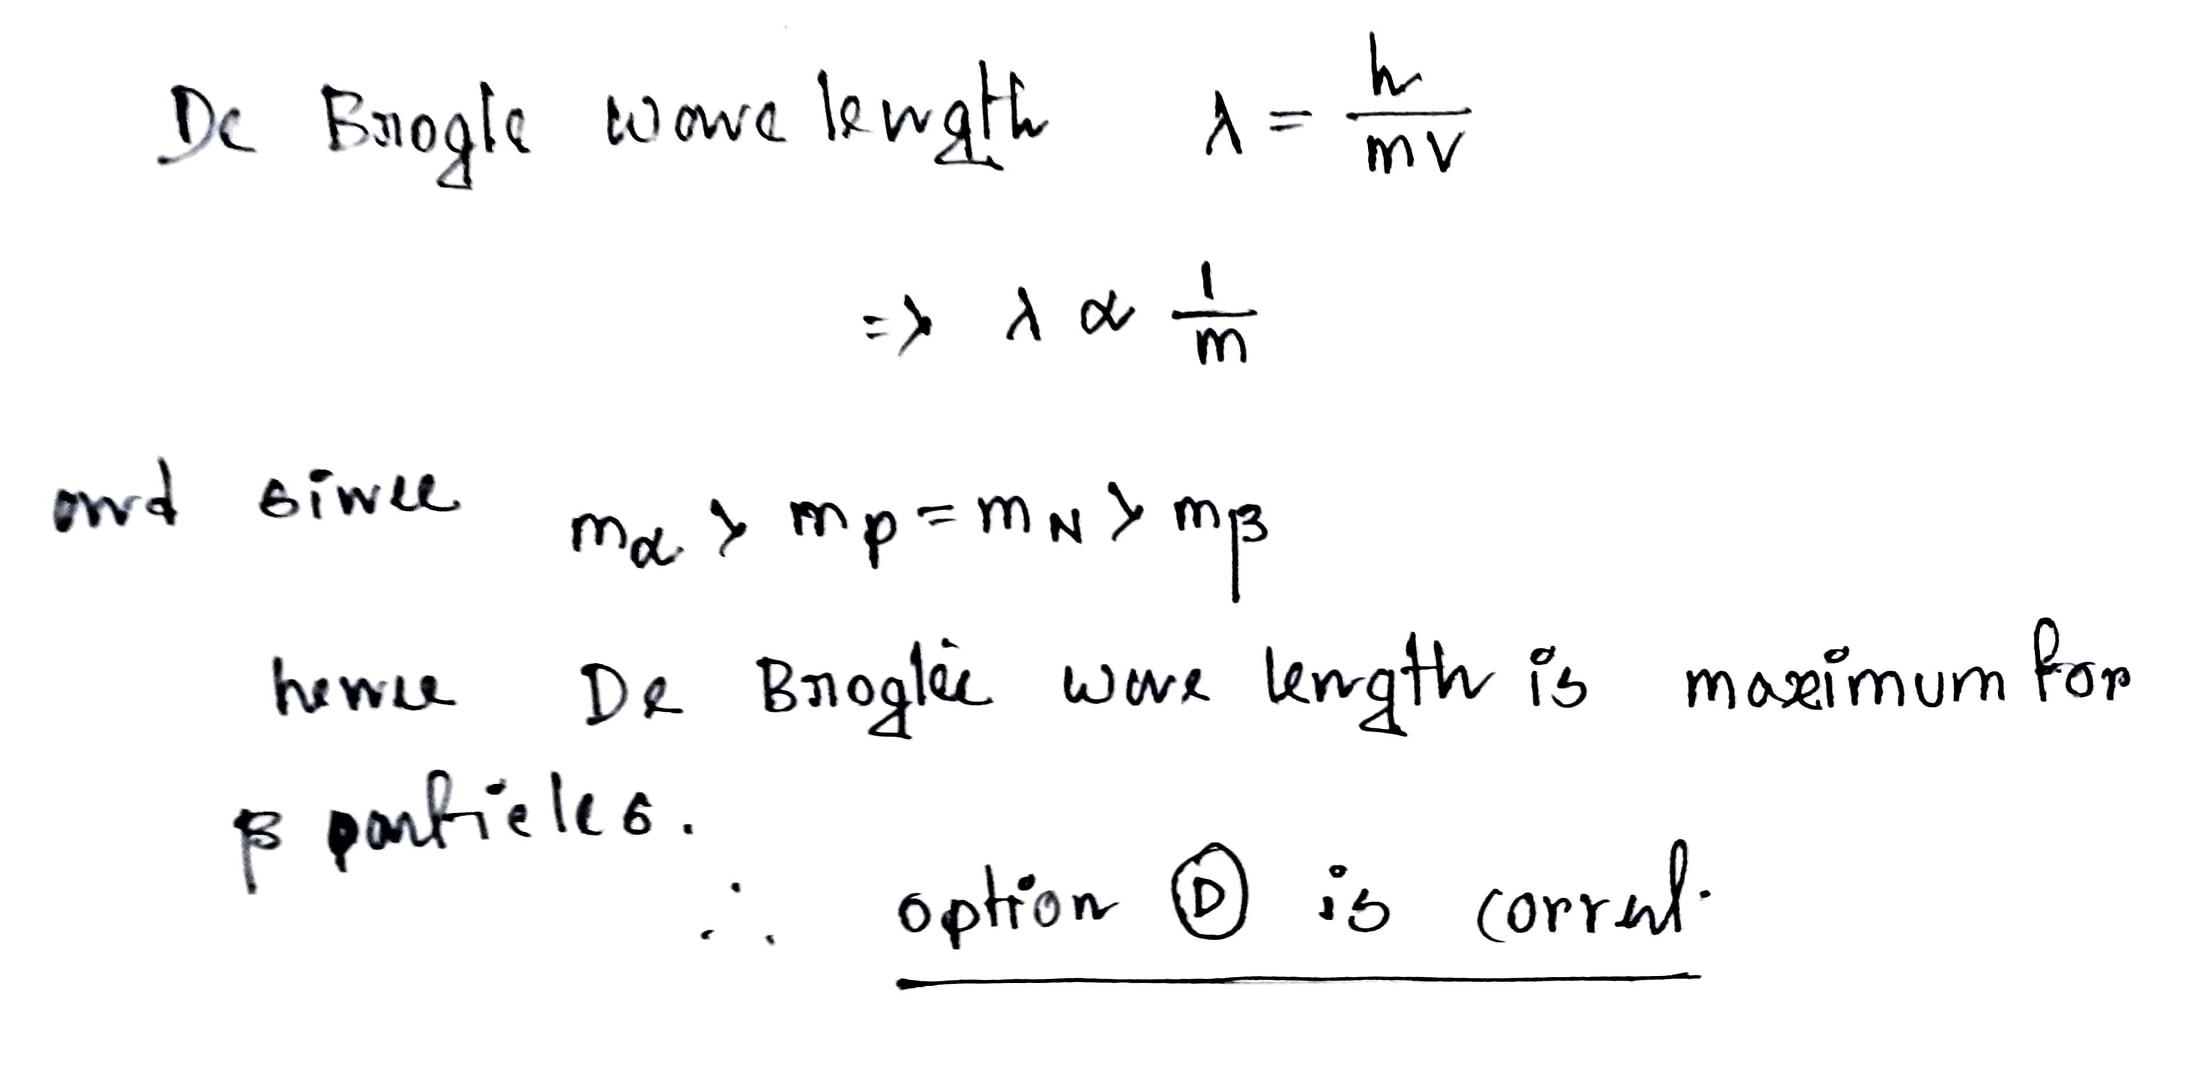 De Brogle wave length λ = h/mv
=> λ ∝ 1/m
and since mα > mp = mN > mβ
hence De Broglie wave length is maximum for
β particles.
∴ option Ⓓ is correct.